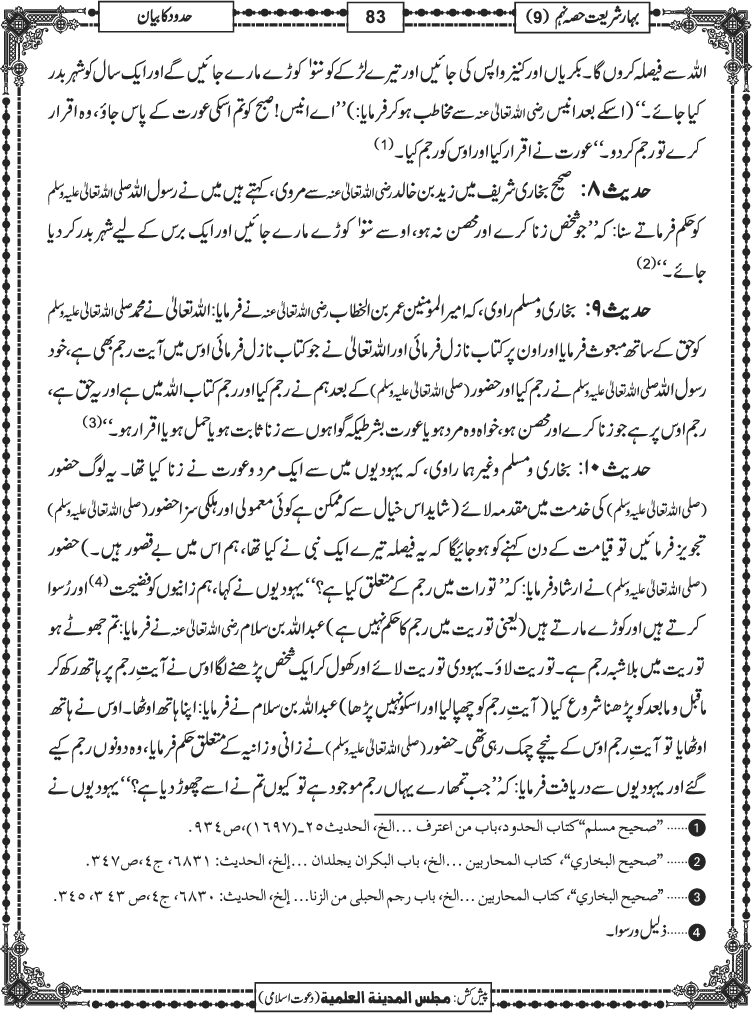 بہار شریعت حصہ نہم (9)
83
حدود کا بیان
اللہ سے فیصلہ کروں گا۔ بکریاں اور کنیز واپس کی جائیں اور تیرے لڑکے کو سو۱۰۰ کوڑے مارے جائیں گے اور ایک سال کو شہر بدر
کیا جائے۔‘‘ (اسکے بعد انیس رضی اللہ تعالیٰ عنہ سے مخاطب ہو کر فرمایا:) ’’اے انیس! صبح کو تم اسکی عورت کے پاس جاؤ، وہ اقرار
کرے تو رجم کردو۔‘‘ عورت نے اقرار کیا اور اوس کو رجم کیا۔ (1)
حدیث ۸: صحیح بخاری شریف میں زید بن خالد رضی اللہ تعالیٰ عنہ سے مروی، کہتے ہیں میں نے رسول اللہ صلی اللہ تعالیٰ علیہ وسلم
کو حکم فرماتے سنا: کہ ’’جو شخص زنا کرے اور محصن نہ ہو، اوسے سو۱۰۰ کوڑے مارے جائیں اور ایک برس کے لیے شہر بدر کر دیا
جائے۔‘‘ (2)
حدیث ۹: بخاری و مسلم راوی، کہ امیر المومنین عمر بن الخطاب رضی اللہ تعالیٰ عنہ نے فرمایا: اللہ تعالیٰ نے محمد صلی اللہ تعالیٰ علیہ وسلم
کو حق کے ساتھ مبعوث فرمایا اور اون پر کتاب نازل فرمائی اور اللہ تعالیٰ نے جو کتاب نازل فرمائی اوس میں آیت رجم بھی ہے، خود
رسول اللہ صلی اللہ تعالیٰ علیہ وسلم نے رجم کیا اور حضور (صلی اللہ تعالیٰ علیہ وسلم) کے بعد ہم نے رجم کیا اور رجم کتاب اللہ میں ہے اور یہ حق ہے،
رجم اوس پر ہے جو زنا کرے اور محصن ہو، خواہ وہ مرد ہو یا عورت بشرطیکہ گواہوں سے زنا ثابت ہو یا حمل ہو یا اقرار ہو۔‘‘ (3)
حدیث ۱۰: بخاری و مسلم وغیرہما راوی، کہ یہودیوں میں سے ایک مرد و عورت نے زنا کیا تھا۔ یہ لوگ حضور
(صلی اللہ تعالیٰ علیہ وسلم) کی خدمت میں مقدمہ لائے (شاید اس خیال سے کہ ممکن ہے کوئی معمولی اور ہلکی سزا حضور (صلی اللہ تعالیٰ علیہ وسلم)
تجویز فرمائیں تو قیامت کے دن کہنے کو ہو جائیگا کہ یہ فیصلہ تیرے ایک نبی نے کیا تھا، ہم اس میں بے قصور ہیں۔) حضور
(صلی اللہ تعالیٰ علیہ وسلم) نے ارشاد فرمایا: کہ ’’تورات میں رجم کے متعلق کیا ہے؟‘‘ یہودیوں نے کہا، ہم زانیوں کو فضیحت (4) اور رُسوا
کرتے ہیں اور کوڑے مارتے ہیں (یعنی توریت میں رجم کا حکم نہیں ہے) عبداللہ بن سلام رضی اللہ تعالیٰ عنہ نے فرمایا: تم جھوٹے ہو
توریت میں بلاشبہ رجم ہے۔ توریت لاؤ۔ یہودی توریت لائے اور کھول کر ایک شخص پڑھنے لگا اوس نے آیتِ رجم پر ہاتھ رکھ کر
ماقبل و مابعد کو پڑھنا شروع کیا (آیتِ رجم کو چھپا لیا اور اسکو نہیں پڑھا) عبداللہ بن سلام نے فرمایا: اپنا ہاتھ اوٹھا۔ اوس نے ہاتھ
اوٹھایا تو آیتِ رجم اوس کے نیچے چمک رہی تھی۔ حضور (صلی اللہ تعالیٰ علیہ وسلم) نے زانی و زانیہ کے متعلق حکم فرمایا، وہ دونوں رجم کیے
گئے اور یہودیوں سے دریافت فرمایا: کہ ’’جب تمھارے یہاں رجم موجود ہے تو کیوں تم نے اسے چھوڑ دیا ہے؟‘‘ یہودیوں نے
1 ...... ’’صحيح مسلم‘‘ كتاب الحدود، باب من اعترف ...الخ، الحديث ٢٥ـ(١٦٩٧)، ص٩٣٤.
2 ...... ’’صحيح البخاري‘‘، كتاب المحاربين ...الخ، باب البكران يجلدان ...إلخ، الحديث: ٦٨٣١، ج٤، ص٣٤٧.
3 ...... ’’صحيح البخاري‘‘، كتاب المحاربين ...الخ، باب رجم الحبلى من الزنا... إلخ، الحديث: ٦٨٣٠، ج٤، ص٣٤٣، ٣٤٥.
4 ...... ذلیل و رسوا۔
پیش کش: مجلس المدینة العلمیة (دعوت اسلامی)